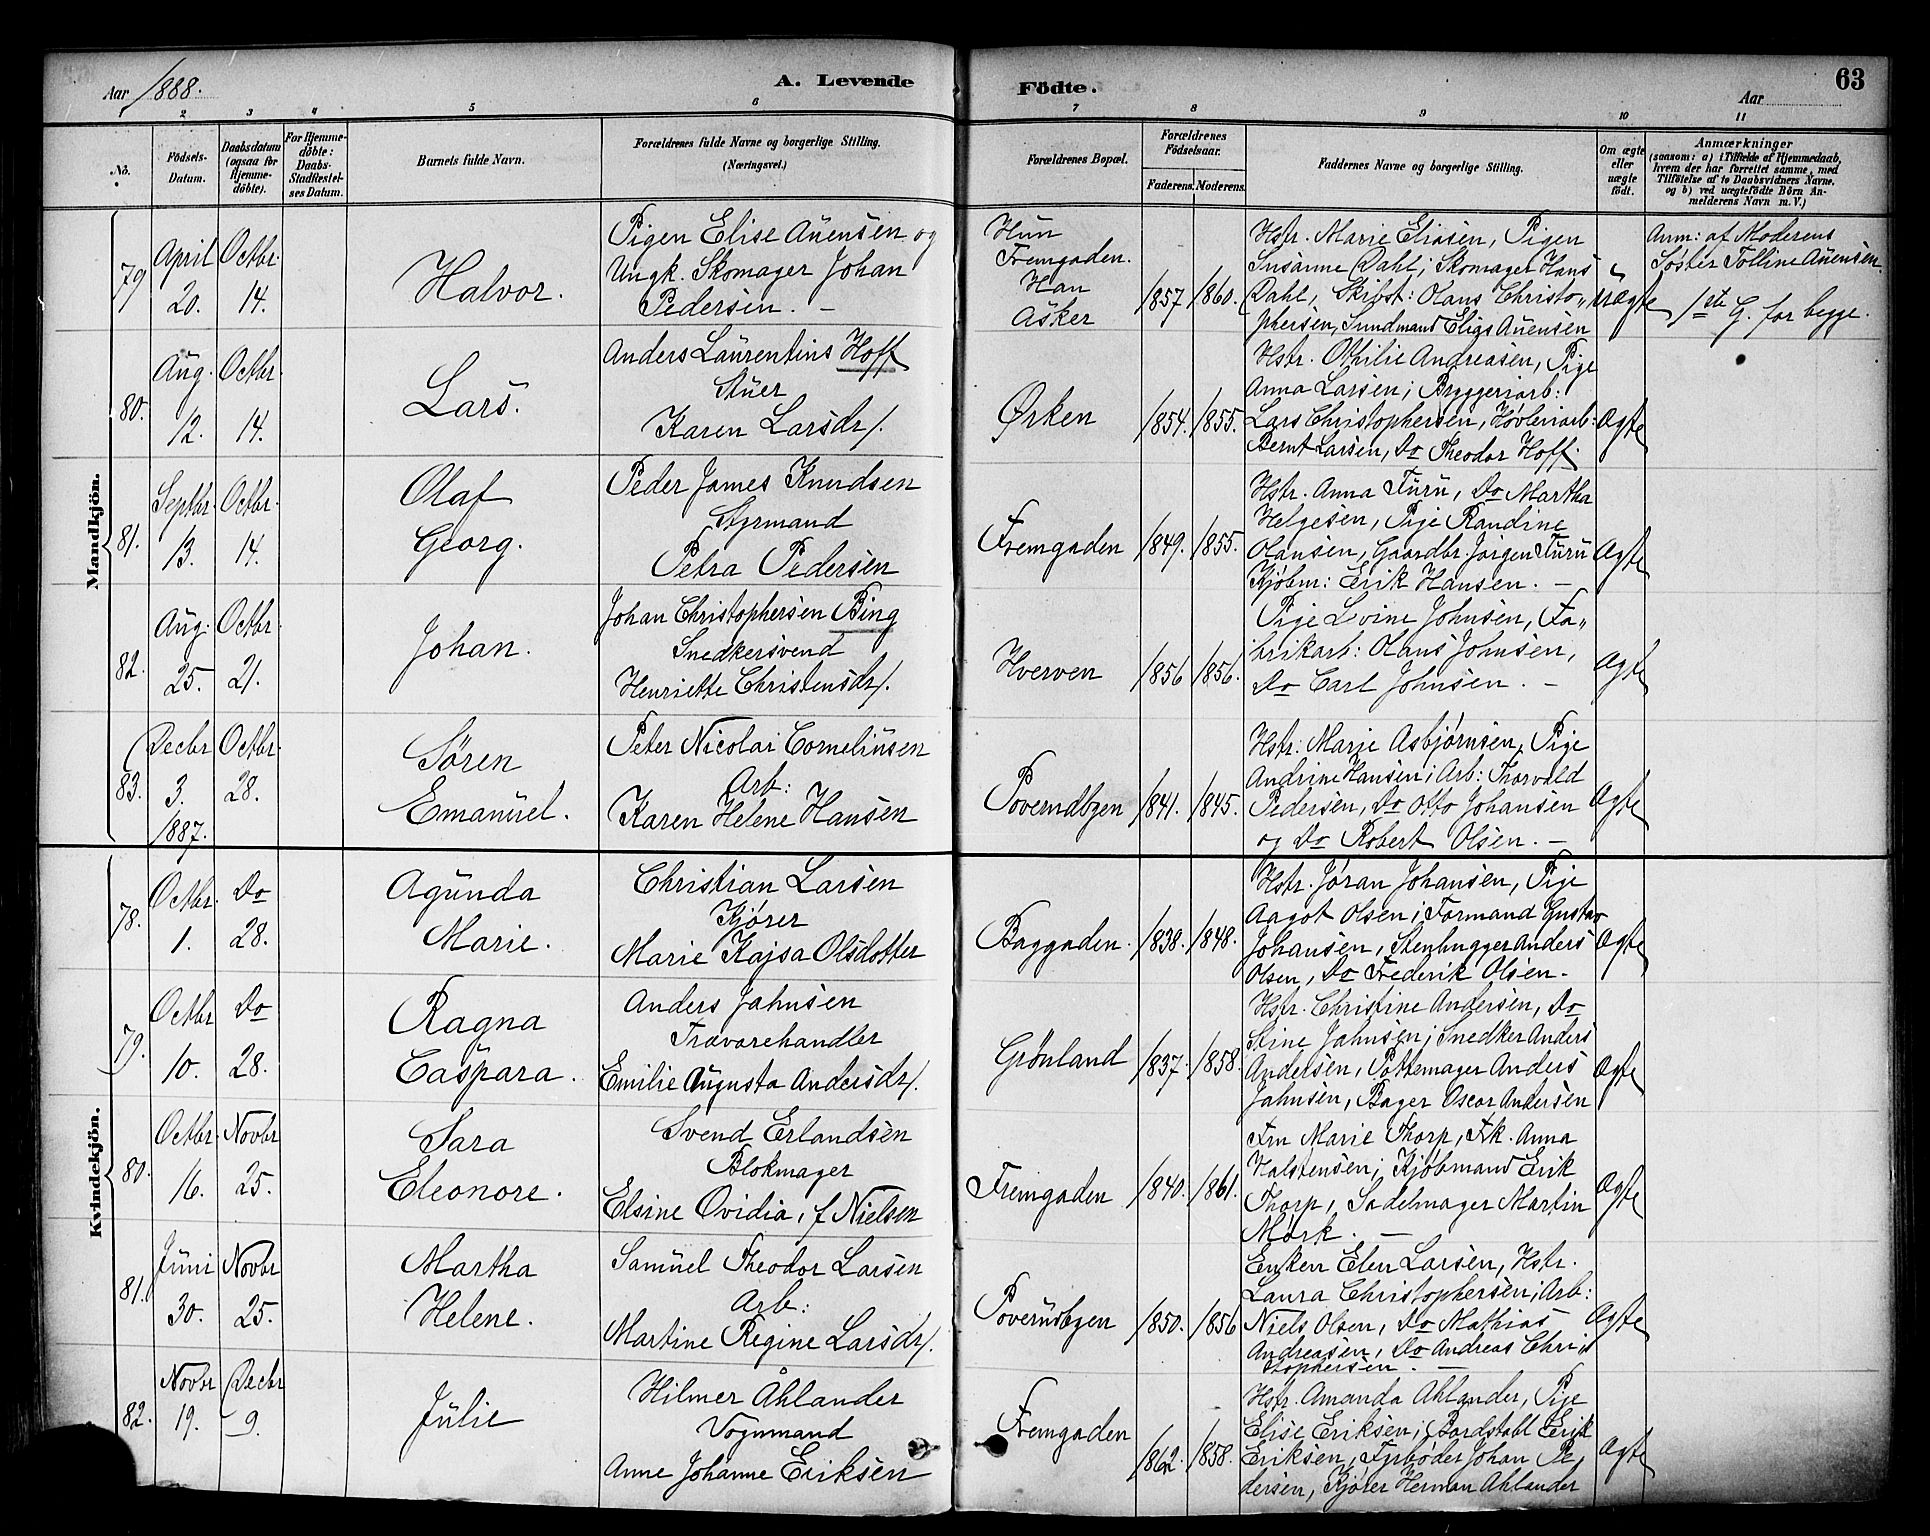 Aar 1888.
A. Levende
Födte.
Aar
63
1 2 3 4 5 6 7 8 9 10 11
No.
Födsels-
Datum.
Daabsdatum
(ogsaa for
Hjemme-
döbte).
For Hjemme-
döbte:
Daabs-
Stadfæstel-
ses Datum.
Barnets fulde Navn.
Forældrenes fulde Navne og borgerlige Stilling.
(Næringsvei.)
Forældrenes Bopæl.
Forældrenes
Födselsaar.
Faderens. Moderens.
Faddernes Navne og borgerlige Stilling.
Om ægte
eller
uægte
födt.
Anmærkninger
(saasom: a) i Tilfælde af Hjemmedaab,
hvem der har forrettet samme, med
Tilföielse af to Daabsvidners Navne,
og b) ved uægtefödte Börn An-
melderens Navn m. V.)
Mandkjön.
79
April
20.
Octbr.
14.
Halvor.
Pigen Elise Auensen og
Ungk. Skomager Johan
Pedersen. –
Hun
Fremgaden.
Han
Asker
1857 1860.
Hstr. Marie Eliasen, Pigen
Susanne Dahl; Skomager Hans
Dahl, Skibst: Olaus Christo„
phersen, Sundmand Elias Auensen
Uægte
Anm: af Moderens
Søster Tolline Auensen.
1ste G. for begge.
80.
Aug.
12.
Octbr.
14.
Lars.
Anders Laurentius Hoff
Stuer
Karen Larsdr/.
Ørken
1854. 1855.
Hstr. Othilie Andreasen, Pige
Anna Larsen; Bryggeriarb:
Lars Christophersen, Høvleriarb:
Bernt Larsen, Do Theodor Hoff.
Ægte
81.
Septbr.
13.
Octbr.
14.
Olaf
Georg.
Peder James Knudsen
Styrmand
Petra Pedersen
Fremgaden
1849. 1855.
Hstr. Anna Furu, Do Martha
Helgesen, Pige Randine
Olausen, Gaardbr. Jørgen Furu
Kjøbm: Erik Hansen. –
Ægte
82.
Aug.
25.
Octbr.
21.
Johan.
Johan Christophersen Bing
Snedkersvend
Henriette Christensdr/.
Hverven
1856 1856.
Pige Lovine Johnsen, Fa„
brikarb: Olaus Johnsen,
Do Carl Johnsen. –
Ægte
83.
Decbr
3.
1887.
Octbr.
28.
Søren
Emanuel.
Peter Nicolai Corneliusen
Arb:
Karen Helene Hansen
Poverudbyen
1841. 1845.
Hstr: Marie Asbjørnsen, Pige
Andrine Hansen; Arb: Thorvald
Pedersen, Do Otto Johansen
og Do Robert Olsen. –
Ægte
Kvindekjön.
78.
Octbr.
1.
Do
28.
Agunda
Marie.
Christian Larsen
Kjører
Marie Kajsa Olsdotter
Baggaden.
1838. 1848.
Hstr. Jøran Johansen, Pige
Aagot Olsen; Formand Gustav
Johansen, Stenhugger Anders
Olsen, Do Frederik Olsen.
Ægte
79.
Octbr
10.
Do
28.
Ragna
Caspara.
Anders Jahnsen
Trævarehandler
Emilie Augusta Andersdr/.
Grønland
1837. 1858.
Hstr. Christine Andersen, Do
Stine Jahnsen; Snedker Anders
Andersen, Pottemager Anders
Jahnsen, Bager Oscar Andersen
Ægte
80.
Octbr.
16.
Novbr
25.
Sara
Eleonore.
Svend Erlandsen
Blokmager
Elsine Ovidia, f Nielsen
Fremgaden
1840. 1861.
Fru Marie Thorp, Frk. Anna
Halstensen; Kjøbmand Erik
Thorp, Sadelmager Martin
Mørk. –
Ægte
81.
Juni
30.
Novbr
25.
Martha
Helene.
Samuel Theodor Larsen
Arb:
Martine Regine Larsdr/.
Poverudbyen
1850. 1856
Enken Elen Larsen, Hstr.
Laura Christophersen; Arb:
Niels Olsen, Do Mathias
Andreasen, Do Andreas Chri„
stophersen. –
Ægte
82.
Novbr
19.
Decbr
9.
Julie
Hilmer Åhlander
Vognmand
Anne Johanne Eriksen
Fremgaden
1862. 1858.
Hstr. Amanda Ahlander, Pige
Elise Eriksen; Bordstabl Erik
Eriksen, Fyrbøder Johan Pe„
dersen, Kjører Herman Ahlander
Ægte